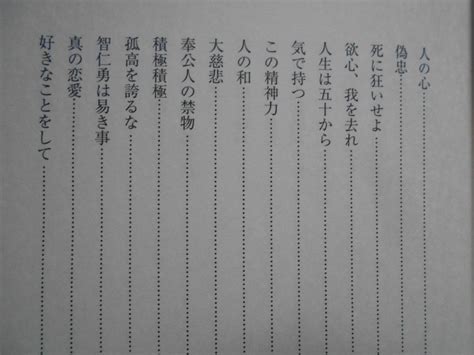 人の心
偽忠
死に狂いせよ
欲心、我を去れ
人生は五十から
気で持つ
この精神力
人の和
大慈悲
奉公人の禁物
積極積極
孤高を誇るな
智仁勇は易き事
真の恋愛
好きなことをして